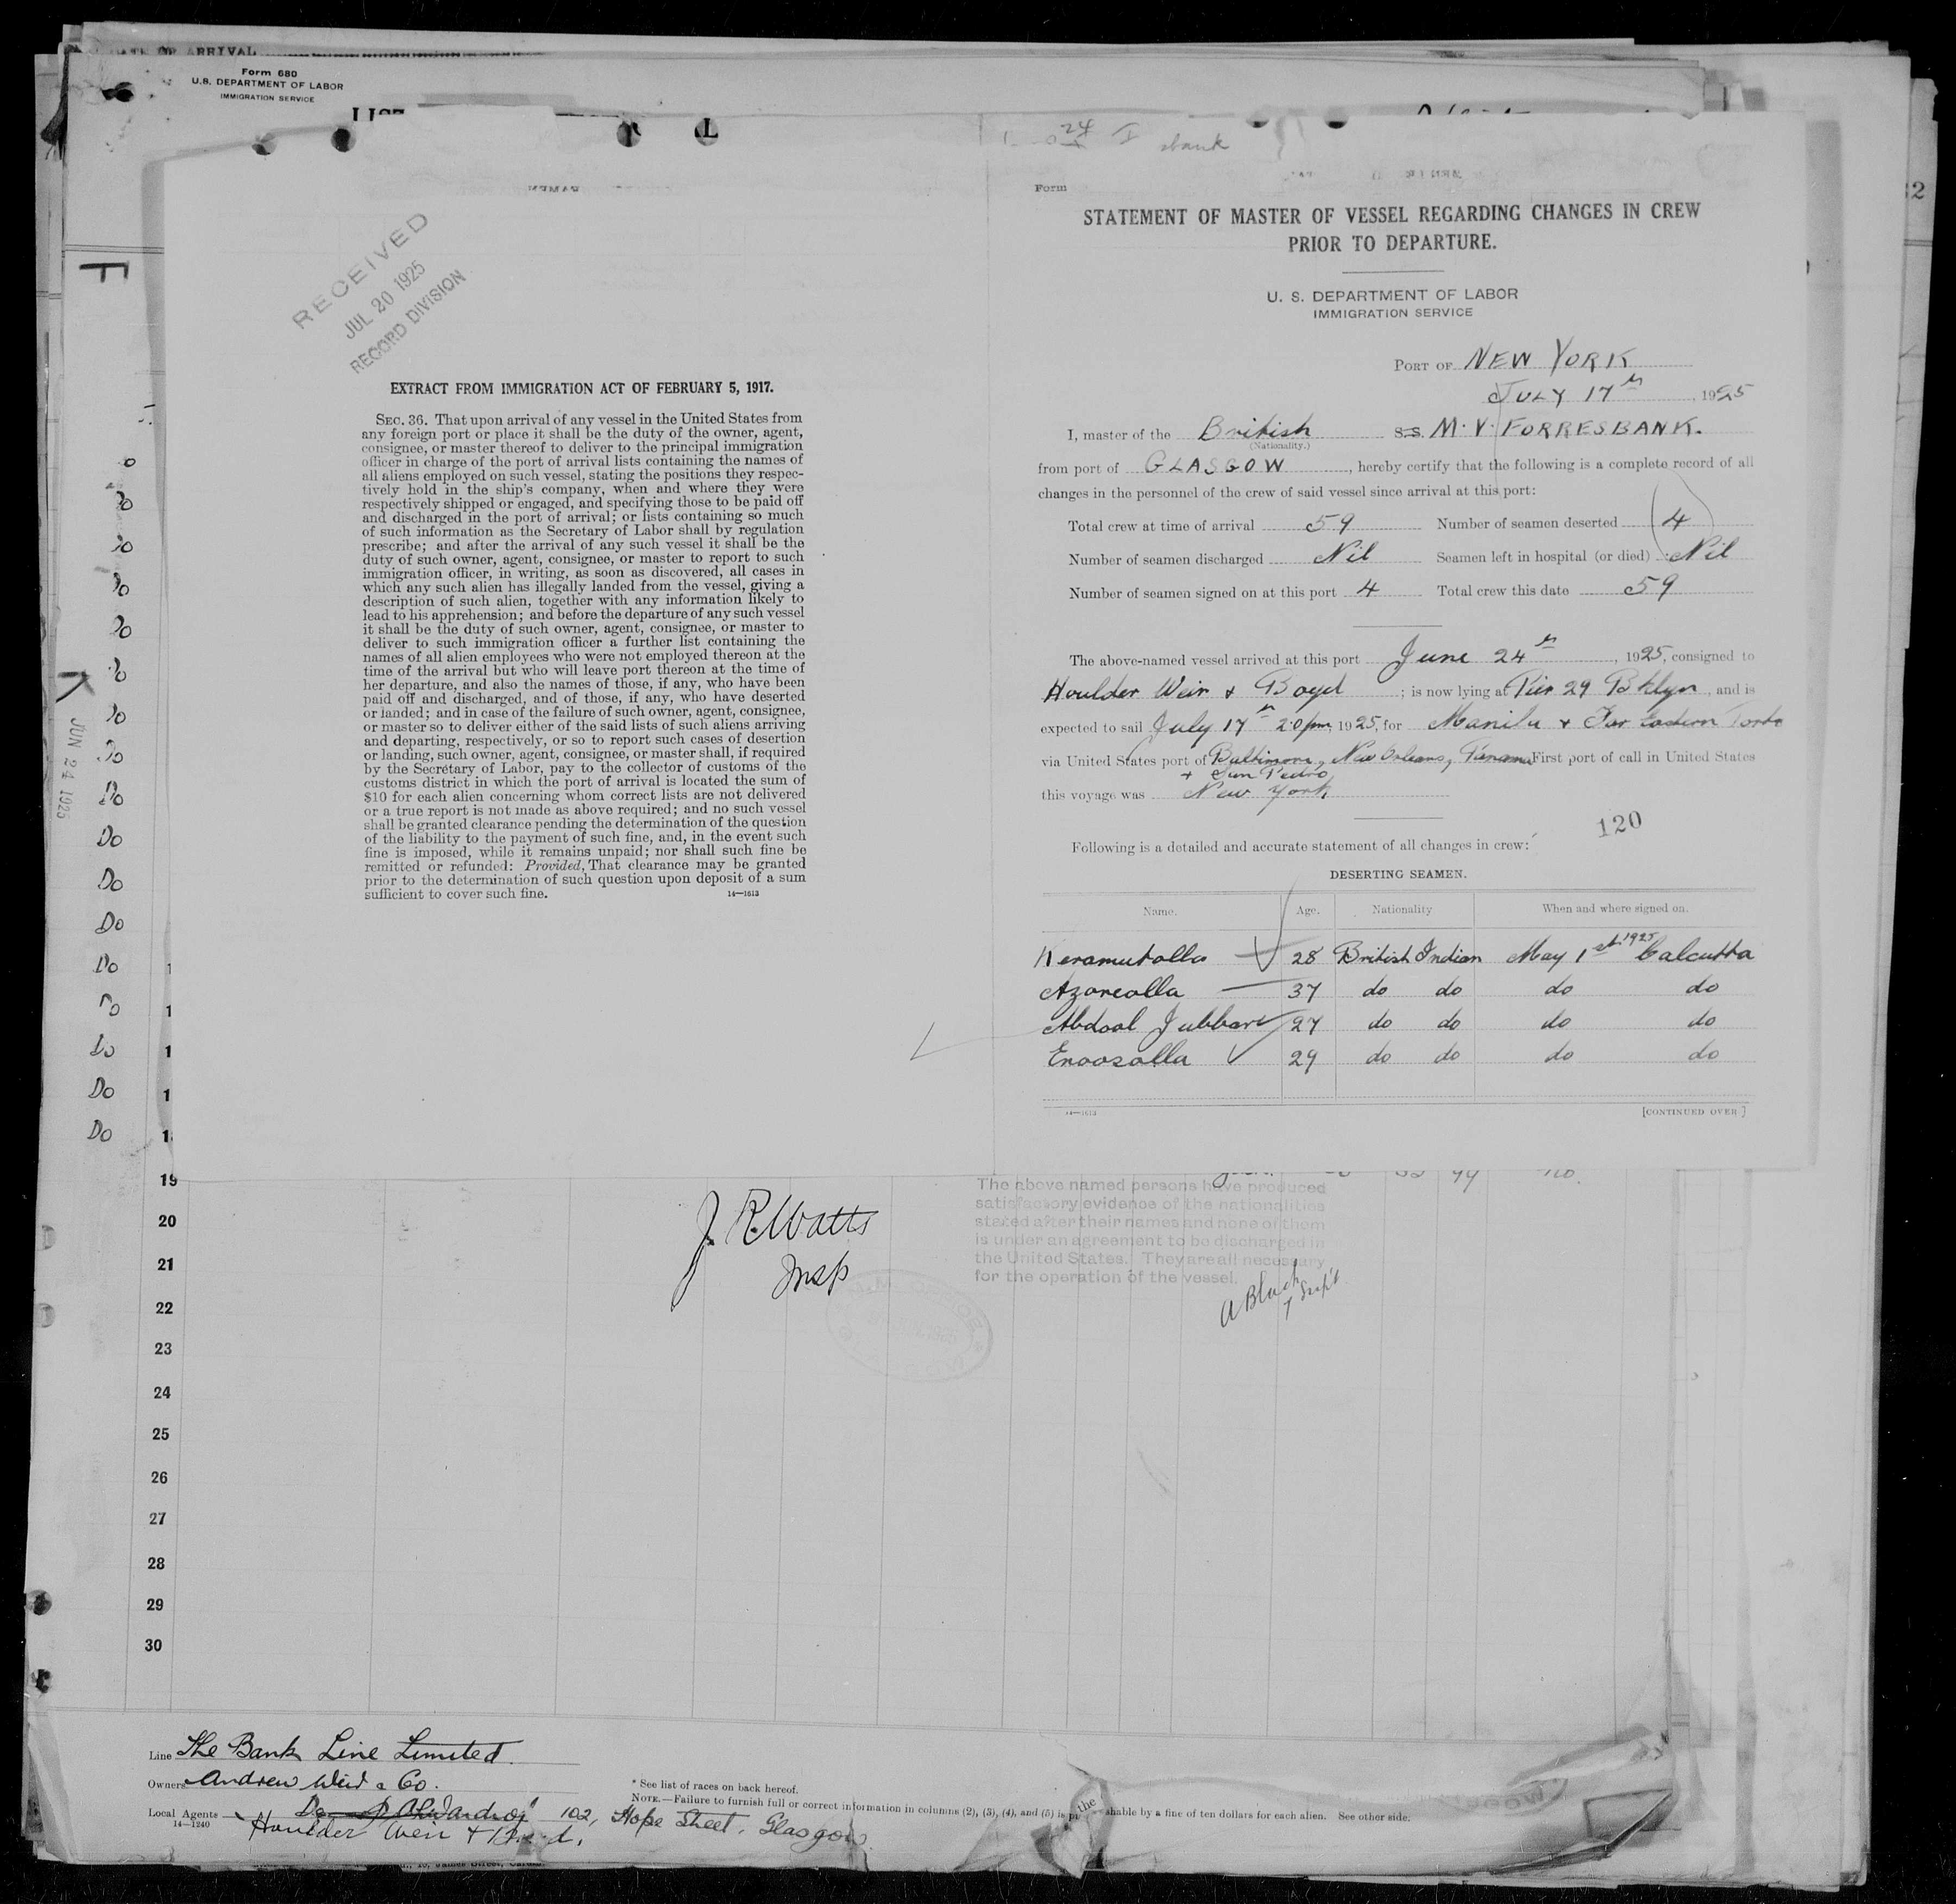 OF ARRIVAL
Form 680
U.S. DEPARTMENT OF LABOR
IMMIGRATION SERVICE
24
bank
Form
RECEIVED
JUL 20 1925
RECORD DIVISION
EXTRACT FROM IMMIGRATION ACT OF FEBRUARY 5, 1917.
SEC. 36. That upon arrival of any vessel in the United States from
any foreign port or place it shall be the duty of the owner, agent,
consignee, or master thereof to deliver to the principal immigration
officer in charge of the port of arrival lists containing the names of
all aliens employed on such vessel, stating the positions they respec-
tively hold in the ship's company, when and where they were
respectively shipped or engaged, and specifying those to be paid off
and discharged in the port of arrival; or lists containing so much
of such information as the Secretary of Labor shall by regulation
prescribe; and after the arrival of any such vessel it shall be the
duty of such owner, agent, consignee, or master to report to such
immigration officer, in writing, as soon as discovered, all cases in
which any such alien has illegally landed from the vessel, giving a
description of such alien, together with any information likely to
lead to his apprehension; and before the departure of any such vessel
it shall be the duty of such owner, agent, consignee, or master to
deliver to such immigration officer a further list containing the
names of all alien employees who were not employed thereon at the
time of the arrival but who will leave port thereon at the time of
her departure, and also the names of those, if any, who have been
paid off and discharged, and of those, if any, who have deserted
or landed; and in case of the failure of such owner, agent, consignee,
or master so to deliver either of the said lists of such aliens arriving
and departing, respectively, or so to report such cases of desertion
or landing, such owner, agent, consignee, or master shall, if required
by the Secretary of Labor, pay to the collector of customs of the
customs district in which the port of arrival is located the sum of
$10 for each alien concerning whom correct lists are not delivered
or a true report is not made as above required; and no such vessel
shall be granted clearance pending the determination of the question
of the liability to the payment of such fine, and, in the event such
fine is imposed, while it remains unpaid; nor shall such fine be
remitted or refunded: Provided, That clearance may be granted
prior to the determination of such question upon deposit of a sum
sufficient to cover such fine. 14—1613
STATEMENT OF MASTER OF VESSEL REGARDING CHANGES IN CREW
PRIOR TO DEPARTURE.
U. S. DEPARTMENT OF LABOR
IMMIGRATION SERVICE
PORT OF NEW YORK
JULY 17th, 1925
I, master of the British S.S. M.V. FORRESBANK.
(Nationality.)
from port of GLASGOW, hereby certify that the following is a complete record of all
changes in the personnel of the crew of said vessel since arrival at this port:
Total crew at time of arrival 59 Number of seamen deserted 4
Number of seamen discharged Nil Seamen left in hospital (or died) Nil
Number of seamen signed on at this port 4 Total crew this date 59
The above-named vessel arrived at this port June 24th, 1925, consigned to
Houlder Weir & Boyd; is now lying at Pier 29 Bklyn, and is
expected to sail July 17th 2.0 pm, 1925, for Manila & Far Eastern Ports
via United States port of Baltimore, New Orleans, Panama First port of call in United States
+ San Pedro
this voyage was New York
120
Following is a detailed and accurate statement of all changes in crew:
DESERTING SEAMEN.
Name. Age. Nationality When and where signed on.
Keramutolla 28 British Indian May 1st 1925 Calcutta
Azoreolla 37 do do do do
Abdool Jubbar 27 do do do do
Enoosolla 29 do do do do
14—1613 [CONTINUED OVER]
JUN 24 1925
Do
Do
Do
Do
Do
Do
Do
Do
19
20
21
22
23
24
25
26
27
28
29
30
J. R. Watts
Insp
The above named persons have produced
satisfactory evidence of the nationalities
stated after their names and none of them
is under an agreement to be discharged in
the United States. They are all necessary
for the operation of the vessel.
Line The Bank Line Limited.
Owners Andrew Weir & Co.
Local Agents 102, Hope Street, Glasgow.
14—1240
Houlder Weir &
* See list of races on back hereof.
NOTE.—Failure to furnish full or correct information in columns (2), (3), (4), and (5) is punishable by a fine of ten dollars for each alien. See other side.